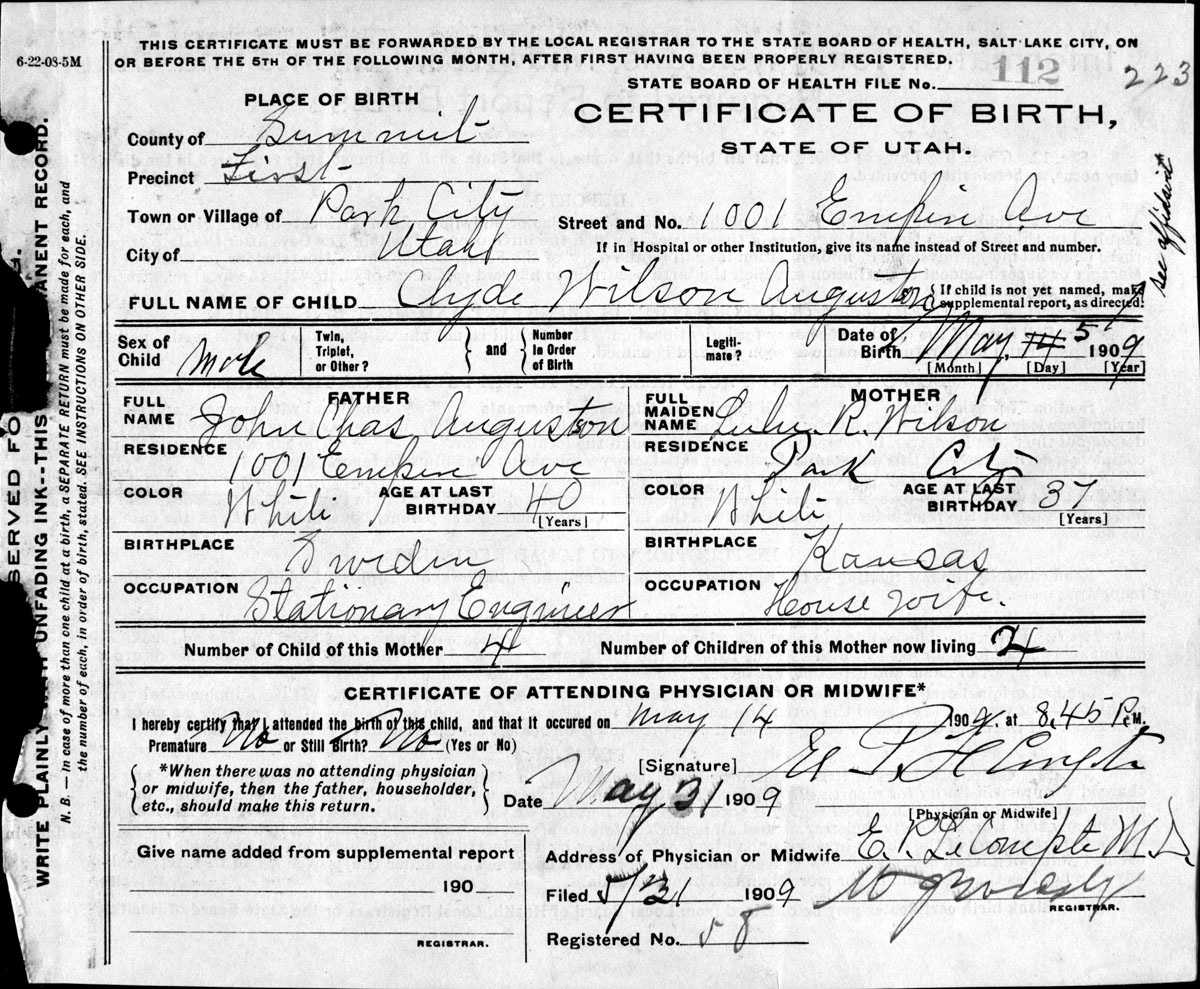 THIS CERTIFICATE MUST BE FORWARDED BY THE LOCAL REGISTRAR TO THE STATE BOARD OF HEALTH, SALT LAKE CITY, ON
6-22-08-5M
OR BEFORE THE 5TH OF THE FOLLOWING MONTH, AFTER FIRST HAVING BEEN PROPERLY REGISTERED.
STATE BOARD OF HEALTH FILE No. 112
223
PLACE OF BIRTH
CERTIFICATE OF BIRTH,
STATE OF UTAH.
County of Summit
Precinct First
Town or Village of Park City Street and No. 1001 Empire Ave
City of Utah If in Hospital or other Institution, give its name instead of Street and number.
see affidavit
FULL NAME OF CHILD Clyde Wilson Auguston { If child is not yet named, make supplemental report, as directed.
Sex of Child Male Twin, Triplet, or Other? } and { Number in Order of Birth Legiti-mate? Date of Birth May 14 5 1909
[Month] [Day] [Year]
FATHER MOTHER
FULL NAME John Chas Auguston FULL MAIDEN NAME Lulu R. Wilson
RESIDENCE 1001 Empire Ave RESIDENCE Park City
COLOR White AGE AT LAST BIRTHDAY 40 [Years] COLOR White AGE AT LAST BIRTHDAY 37 [Years]
BIRTHPLACE Sweden BIRTHPLACE Kansas
OCCUPATION Stationary Engineer OCCUPATION House wife.
Number of Child of this Mother 4 Number of Children of this Mother now living
CERTIFICATE OF ATTENDING PHYSICIAN OR MIDWIFE*
I hereby certify that I attended the birth of this child, and that it occured on May 14 1909, at 8.45 P.M.
Premature No or Still Birth? No (Yes or No)
[Signature]
{ *When there was no attending physician or midwife, then the father, householder, etc., should make this return. }
Date May 31 1909
[Physician or Midwife]
Give name added from supplemental report
Address of Physician or Midwife E. P. LeCompte M.D.
190
Filed 5/31 1909
REGISTRAR.
REGISTRAR.
Registered No. 58
RESERVED FO
WRITE PLAINLY WITH UNFADING INK--THIS ANENT RECORD.
N. B. — In case of more than one child at a birth, a SEPARATE RETURN must be made for each, and
the number of each, in order of birth, stated. SEE INSTRUCTIONS ON OTHER SIDE.